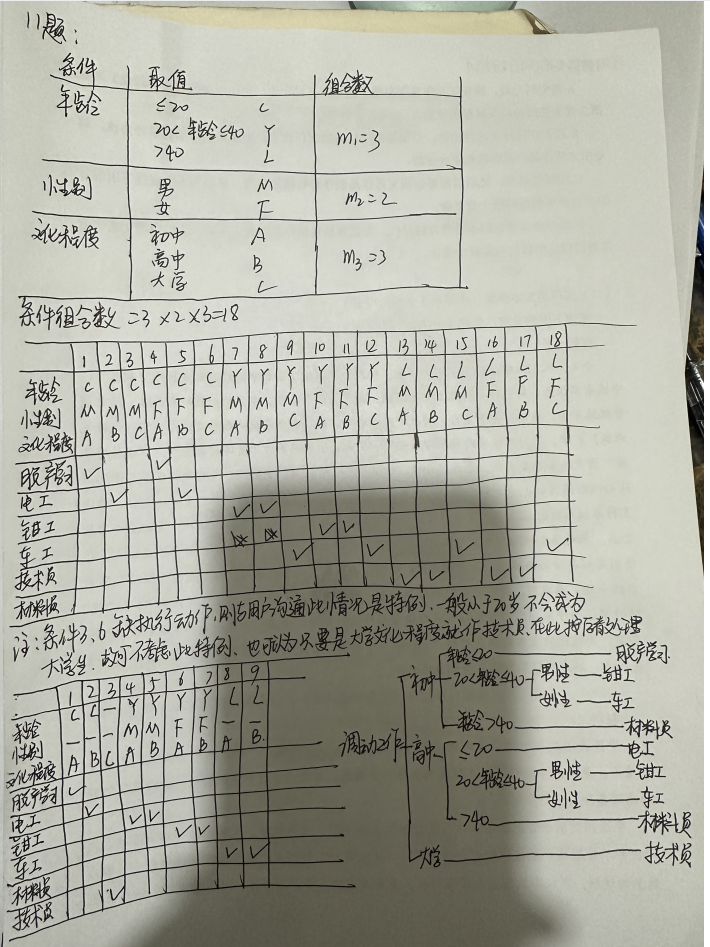 11题:
条件 取值 组合数
年龄 ≤20 C
20<年龄≤40 Y m₁=3
>40 L
性别 男 M
女 F m₂=2
文化程度 初中 A
高中 B m₃=3
大学 C
条件组合数=3×2×3=18
1 2 3 4 5 6 7 8 9 10 11 12 13 14 15 16 17 18
年龄 C C C C C C Y Y Y Y Y Y L L L L L L
性别 M M M F F F M M M F F F M M M F F F
文化程度 A B C A B C A B C A B C A B C A B C
脱产学习 ✓ ✓
电工 ✓ ✓
钳工 ✓ ✓
车工 ✓ ✓
技术员 ✓ ✓ ✓ ✓
材料员 ✓ ✓ ✓ ✓
注:条件3、6缺执行动作,则与用户沟通此情况是特例.一般小于20岁不会成为
大学生.故可不考虑此特例.也可认为只要是大学文化程度就作技术员.在此按后者处理
1 2 3 4 5 6 7 8 9
年龄 C C - Y Y Y Y L L
性别 - - - M M F F - -
文化程度 A B C A B A B A B
脱产学习 ✓
电工 ✓
钳工 ✓ ✓
车工 ✓ ✓
材料员 ✓ ✓
技术员 ✓
调动工作
初中 年龄≤20 脱产学习
20<年龄≤40 男性 钳工
女性 车工
年龄>40 材料员
高中 ≤20 电工
20<年龄≤40 男性 钳工
女性 车工
>40 材料员
大学 技术员